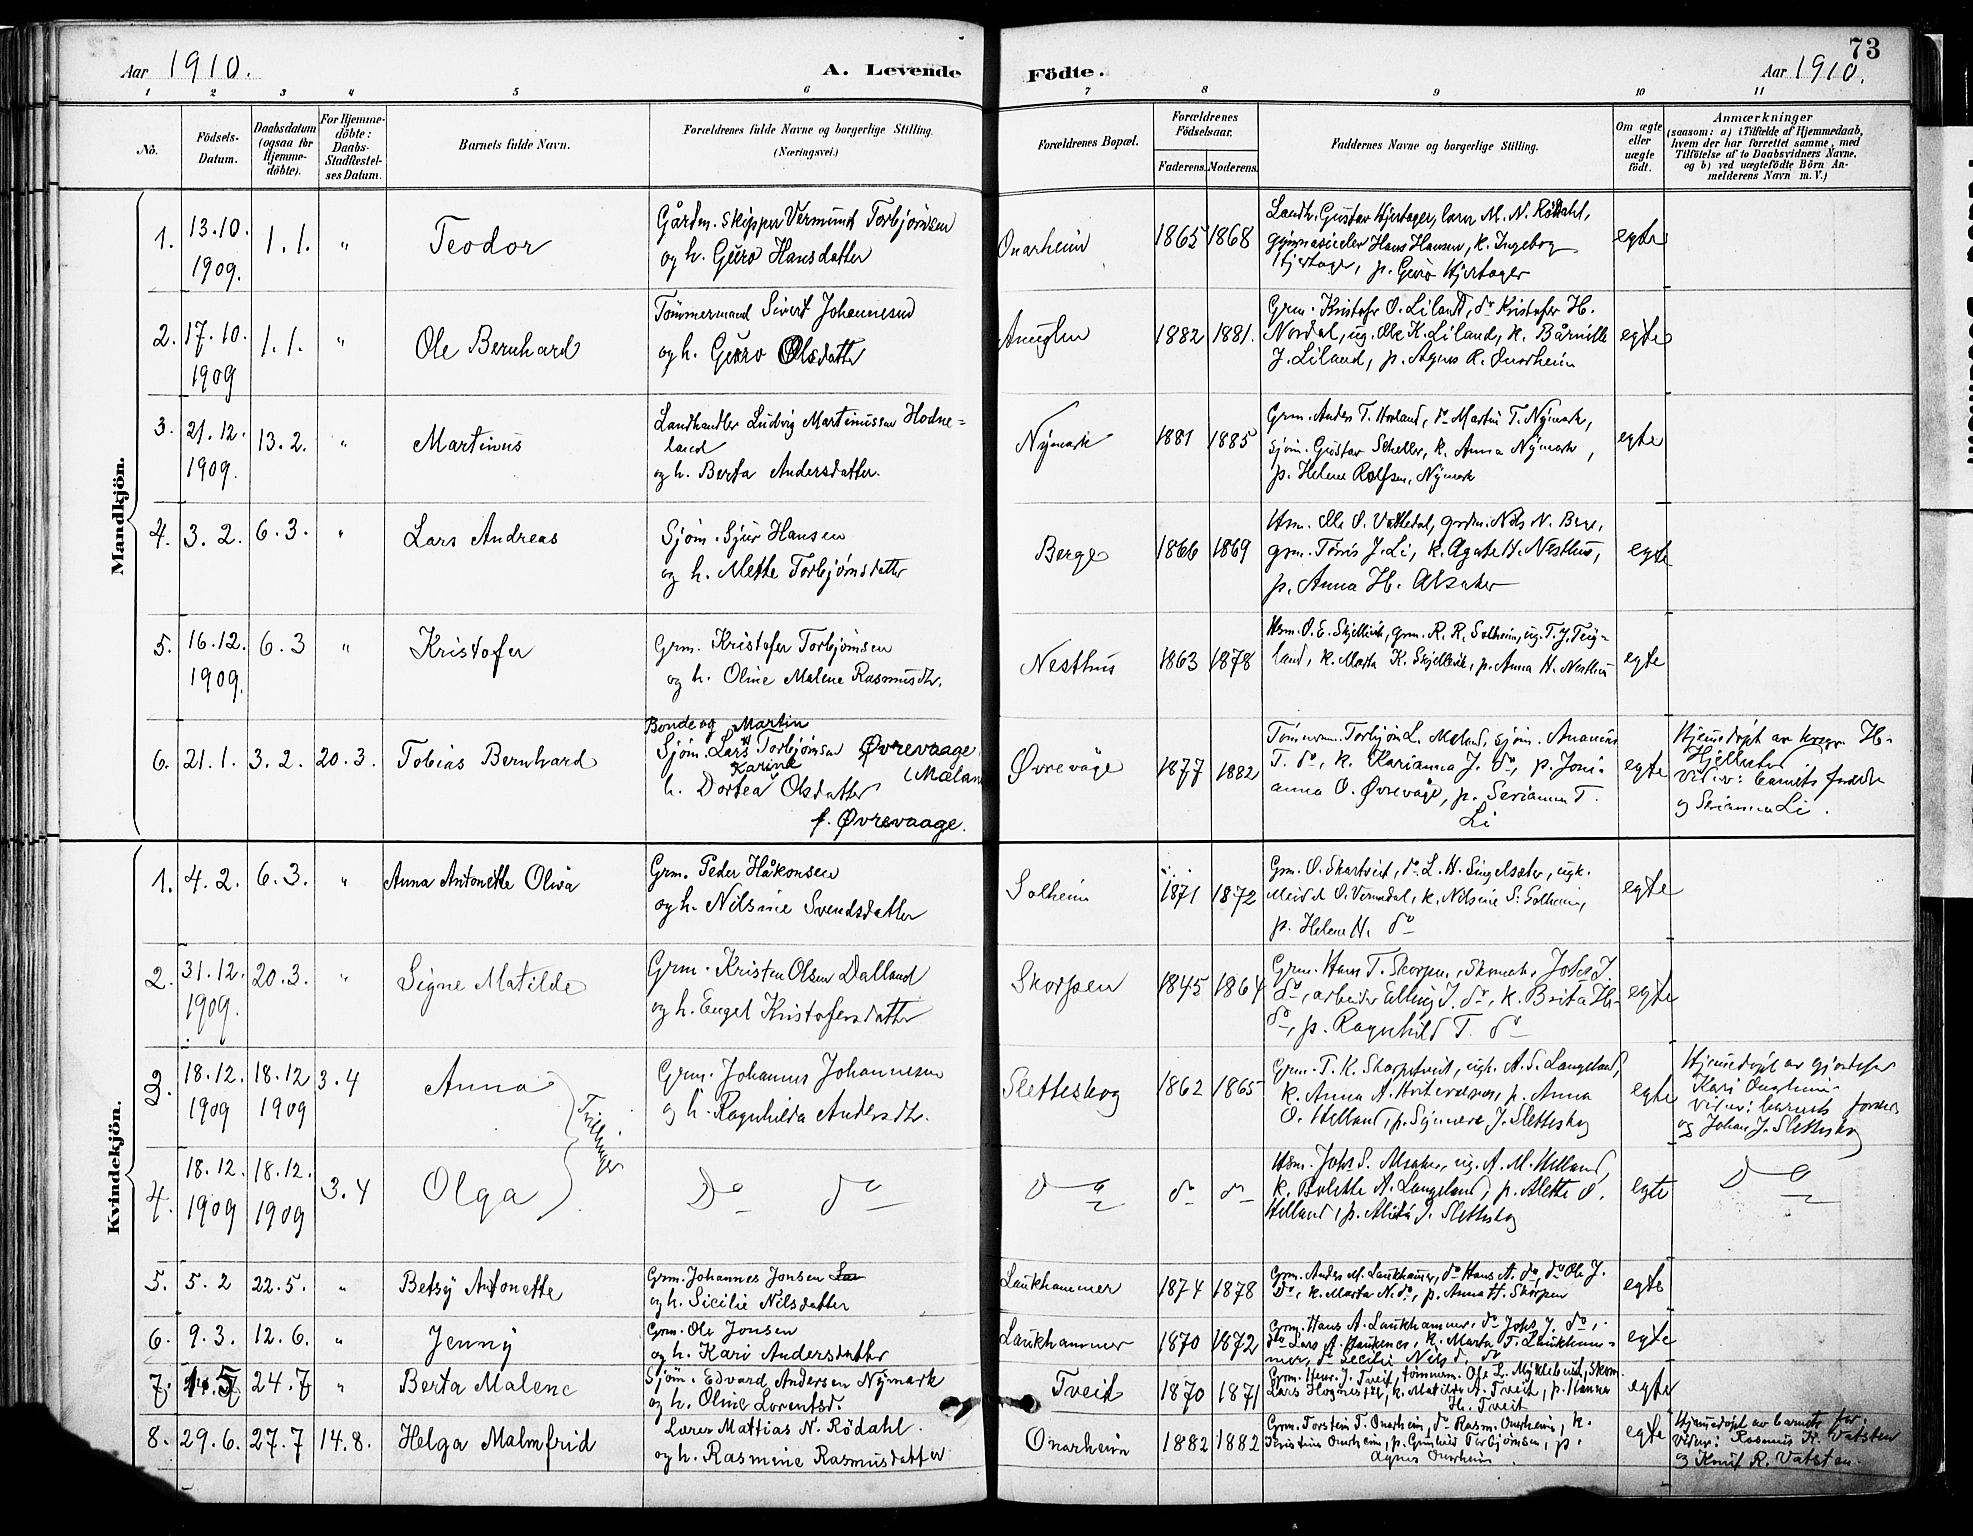 73
Aar 1910.
A. Levende Födte.
Aar 1910.
1 2 3 4 5 6 7 8 9 10 11
No.
Födsels-Datum.
Daabsdatum (ogsaa for Hjemme-döbte).
For Hjemme-döbte: Daabs-Stadfæstel-ses Datum.
Barnets fulde Navn.
Forældrenes fulde Navne og borgerlige Stilling.
(Næringsvei.)
Forældrenes Bopæl.
Forældrenes Födselsaar.
Faderens. Moderens.
Faddernes Navne og borgerlige Stilling.
Om ægte eller uægte födt.
Anmærkninger
(saasom: a) i Tilfælde af Hjemmedaab,
hvem der har forrettet samme, med
Tilföielse af to Daabsvidners Navne,
og b) ved uægtefödte Börn An-
melderens Navn m. V.)
Mandkjön.
1. 13.10. 1909. 1.1. " Teodor
Gårdm. Skipper Vermund Torbjörnsen
og h. Guro Hansdatter
Onarheim 1865 1868
Landh. Gustav Hjertager, lærer M. N. Rödahl,
gymnasieelev Hans Hansen, k. Ingeborg
Hjertager, p. Guro Hjertager
egte
2. 17.10. 1909 1.1. " Ole Bernhard
Tömmermand Sivert Johannesen
og h. Guro Olsdatter
1882 1881.
Grm. Kristofer O. Liland, do Kristofer H.
Nordal, ug. Ole K. Liland, k.
J. Liland, p. Agnes R. Onarheim
egte
3. 21.12. 1909. 13.2. " Martinus
Landhandler Ludvig Martinussen Hodne=
land
og h. Berta Andersdatter.
Nymark 1881 1885
Grm. Anders T. Hovland, do Martin T. Nymark,
sjöm. Gustav Scheller, k. Anna Nymark,
p. Helene Rolfsen, Nymark
egte
4. 3.2. 6.3. " Lars Andreas
Sjöm. Sjur Hansen
og h. Mette Torbjörnsdatter
Berge 1866 1869
Hsm. Ole O. Valledal, grdm. Nils N. Berge,
grm. Törris J. Li, k. Agate H. Nesthus,
p. Anna H. Alsaker
egte
5. 16.12. 1909. 6.3 " Kristofer
Grm. Kristofer Torbjörnsen
og h. Oline Malene Rasmusdtr.
Nesthus 1863 1878
Hsm. O. E. Skjellevik, grm. R. R. Solheim, ug. T. J. Teig=
land, k. Marta K. Skjellevik, p. Anna H. Nesthus
egte
6. 21.1. 3.2. 20.3. Tobias Bernhard
Bonde og Martin
Sjöm. Lars Torbjörnsen Øvrevaage
Karine (Mæland
h. Dortea Olsdatter
f. Øvrevaage.
Øvrevåge 1877 1882
Tömmerm. Torbjörn L. Mæland, sjöm. Ananias
T. do, k. Karianna J. do, p. Joni-
anna O. Øvrevåge, p. Serianna T.
Li
egte
Hjemmedöpt av H.
vidner: barnets forældre
og Serianna Li.
Kvindekjön.
1. 4.2. 6.3. " Anna Antonette Oliva
Grm. Peder Håkonsen
og h. Nilsine Svendsdatter
Solheim 1871 1872
Grm. O. Skartveit, do L. H. Singelsæter, ugk.
O. k. Nilsine S. Solheim,
p. Helene H. do
egte
2. 31.12. 1909. 20.3. " Signe Matilde
Grm. Kristen Olsen Dalland
og h. Engel Kristofersdatter
Skorpen 1845 1864
Grm. Hans T. Skorpen, Johs J.
do, arbeider Elling J. do, k. Brita H.
do, p. Ragnhild T. do
egte
3. 18.12. 1909 18.12 1909 3.4 Anna
Grm. Johannes Johannesen
og h. Ragnhilda Andersdtr.
Tvillinger
Sletteskog 1862 1865
Grm. T. K. Skarptveit, ugk. A. S. Langeland,
k. Anna A. p. Anna
O. Helland, p. Synneva J. Sletteskog
egte
Hjemmedöpt av
Kari
vidner: barnets forældre
og Johan J. Sletteskog
4. 18.12. 1909 18.12. 1909 3.4 Olga
Do do
Do do do
Hsm. Johs S. Alsaker, ug. A. M. Helland,
k. Bolette A. Langeland, p. Alette O.
Helland, p. J. Sletteskog
egte
Do
5. 5.2 22.5. " Betsy Antonette
Grm. Johannes Jonsen
og h. Sicilie Nilsdatter
Laukhammer 1874 1878
Grm. Anders M. Laukhamer, do Hans A. do, do Ole J.
do, k. Marta N. do, p. Anna H. Skorpen
egte
6. 9.3. 12.6. " Jenny
Grm. Ole Jonsen
og h. Kari Andersdatter
Laukhammer 1870 1872
Grm. Hans A. Laukhammer, do Johs J. do,
do Lars A. Haukenes, k. Marta T. Laukham-
mer, do Cecilie Nilsd. do
egte
7. 1.5 24.7 " Berta Malene
Sjöm. Edvard Andersen Nymark
og h. Oline Lorentsd.
Tveit 1870 1871
Grm. Henr. J. Tveit, tömmerm. Ole L. Myklebust, Skom.
Lars k. Matilde A. Tveit, p. Hanna
H. Tveit
egte
8. 29.6. 27.7 14.8. Helga Malmfrid
Lærer Mattias N. Rödahl.
og h. Rasmine Rasmusdatter
Onarheim 1882 1882
Grm. Torstein T. Onarheim, do Rasm. Onarheim, k.
Kristine Onarheim, p. Gunhild Torbjörnsen, p.
Agnes Onarheim
egte
Hjemmedöpt av barnets far.
vidner: Rasmus K. Vatsten
og Knut R. Vatsten.